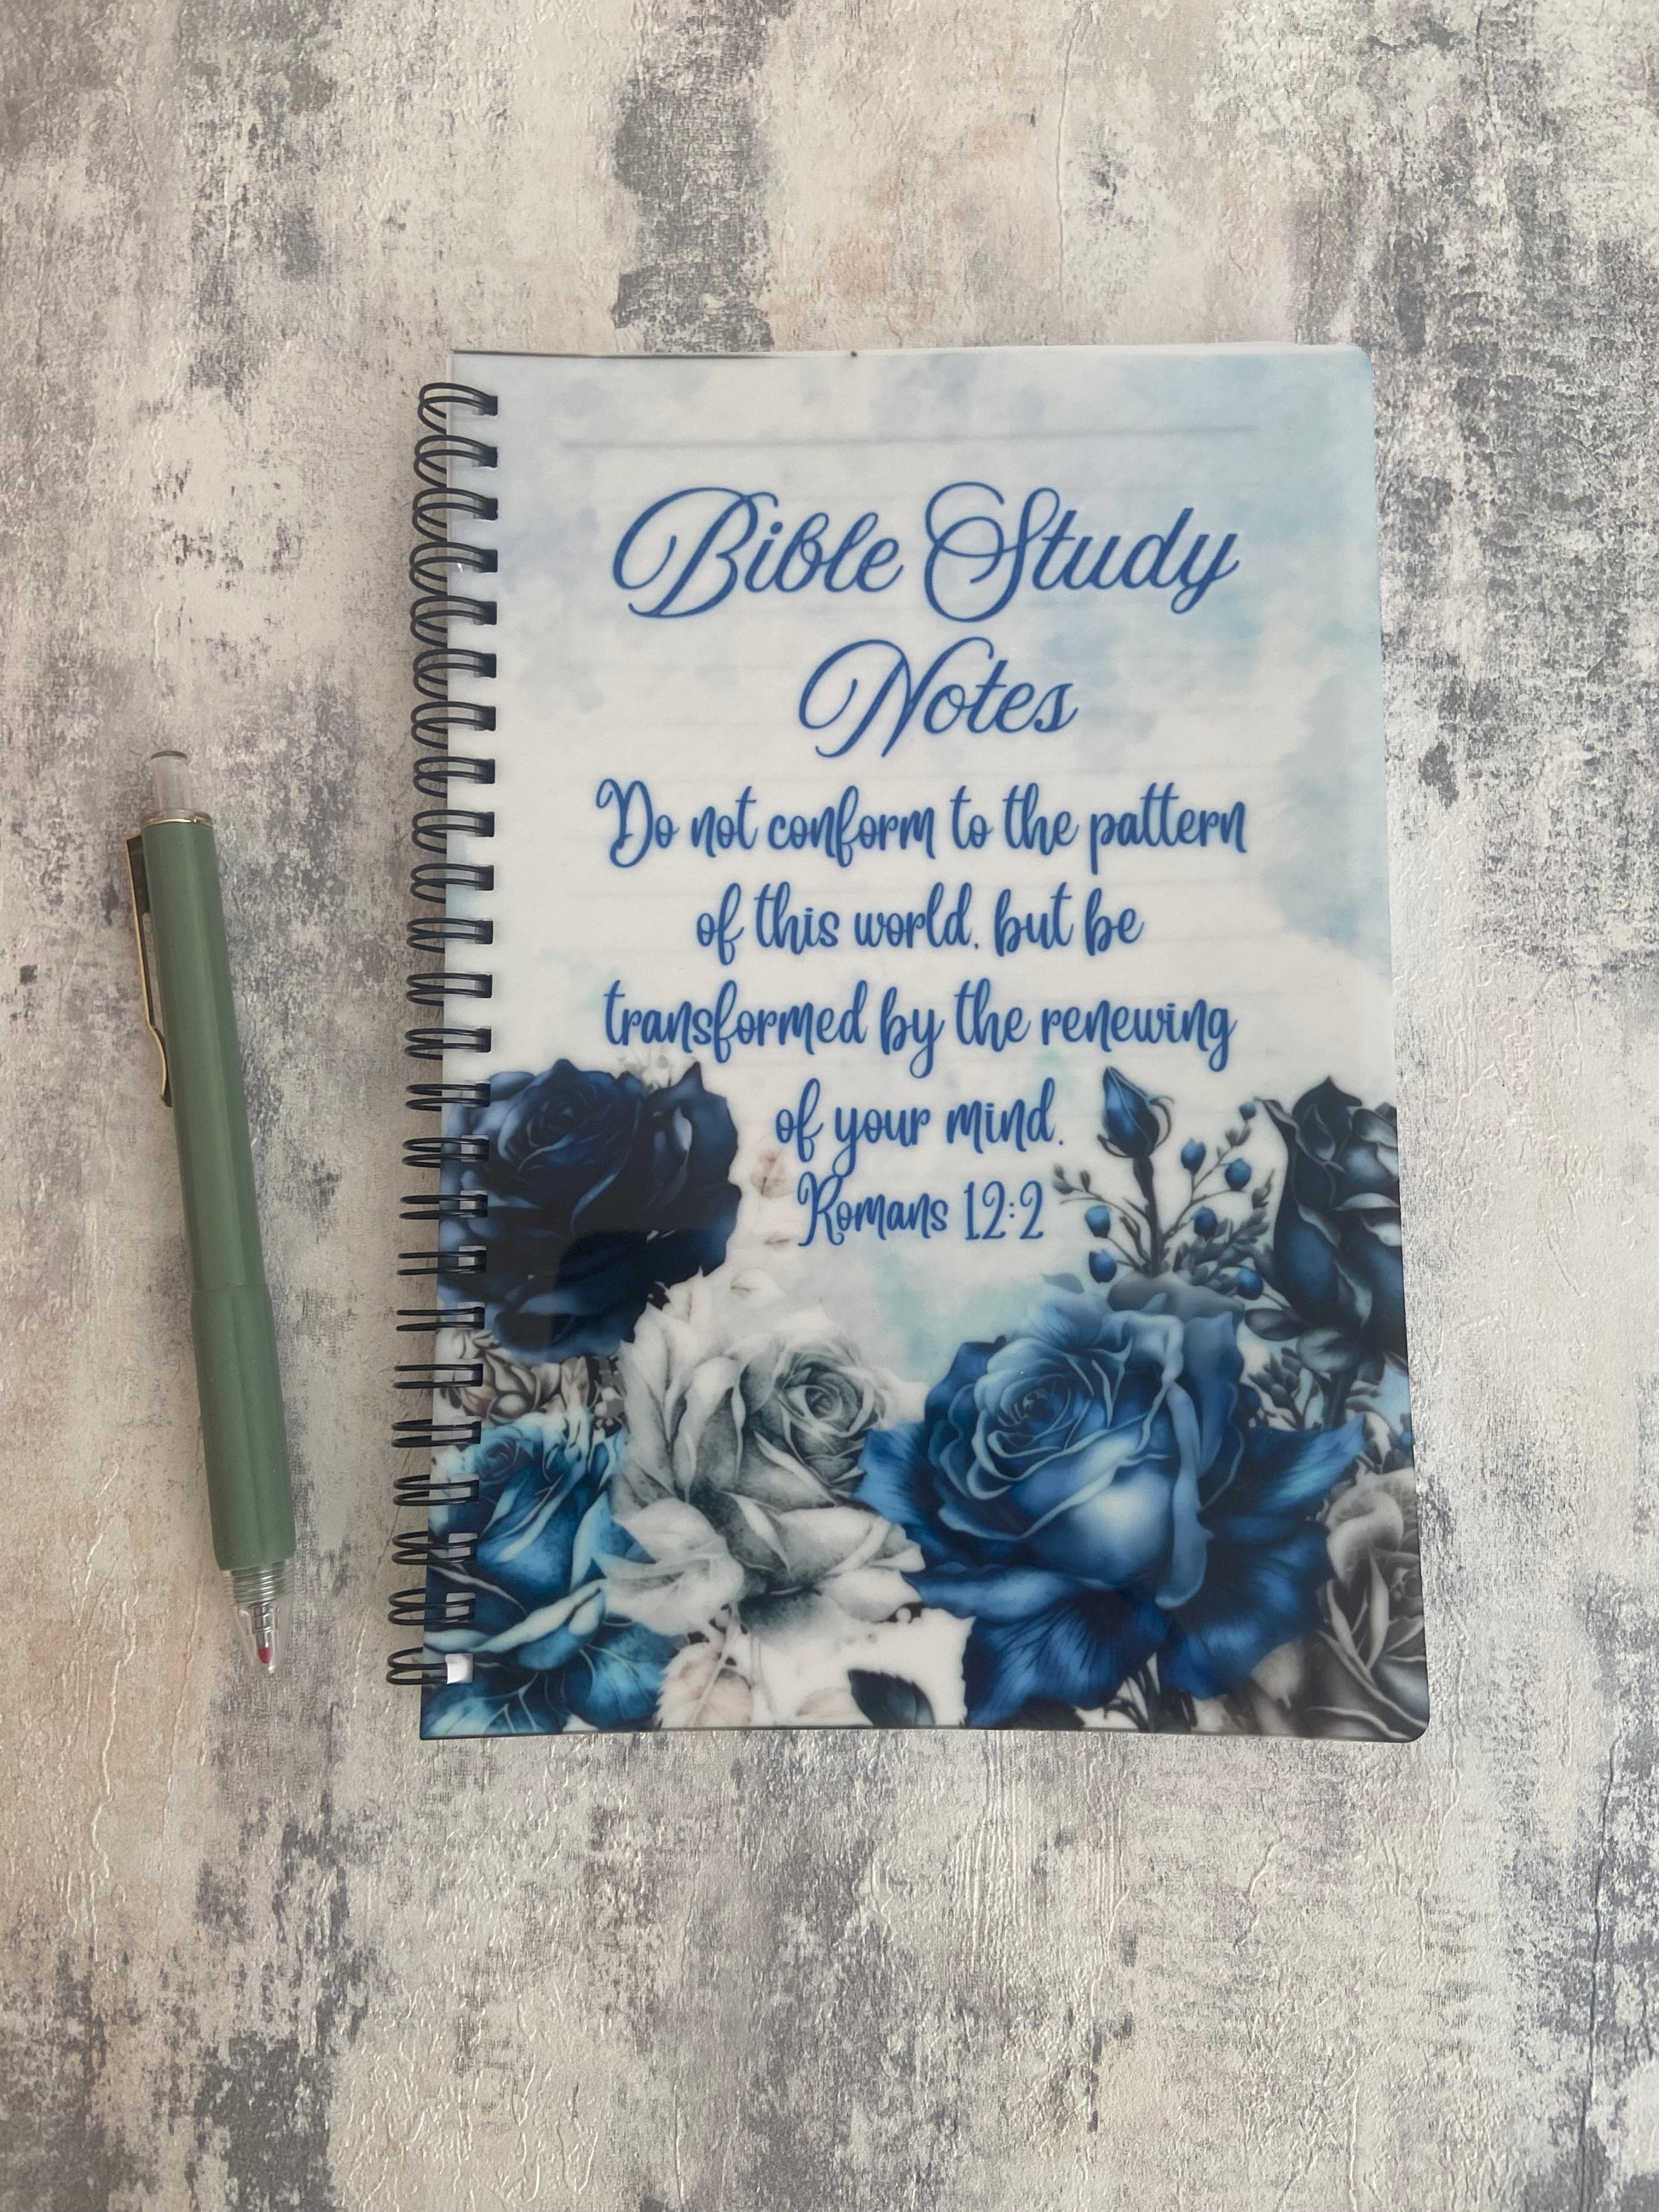 Bible Study
Notes
Do not conform to the pattern
of this world, but be
transformed by the renewing
of your mind.
Romans 12:2